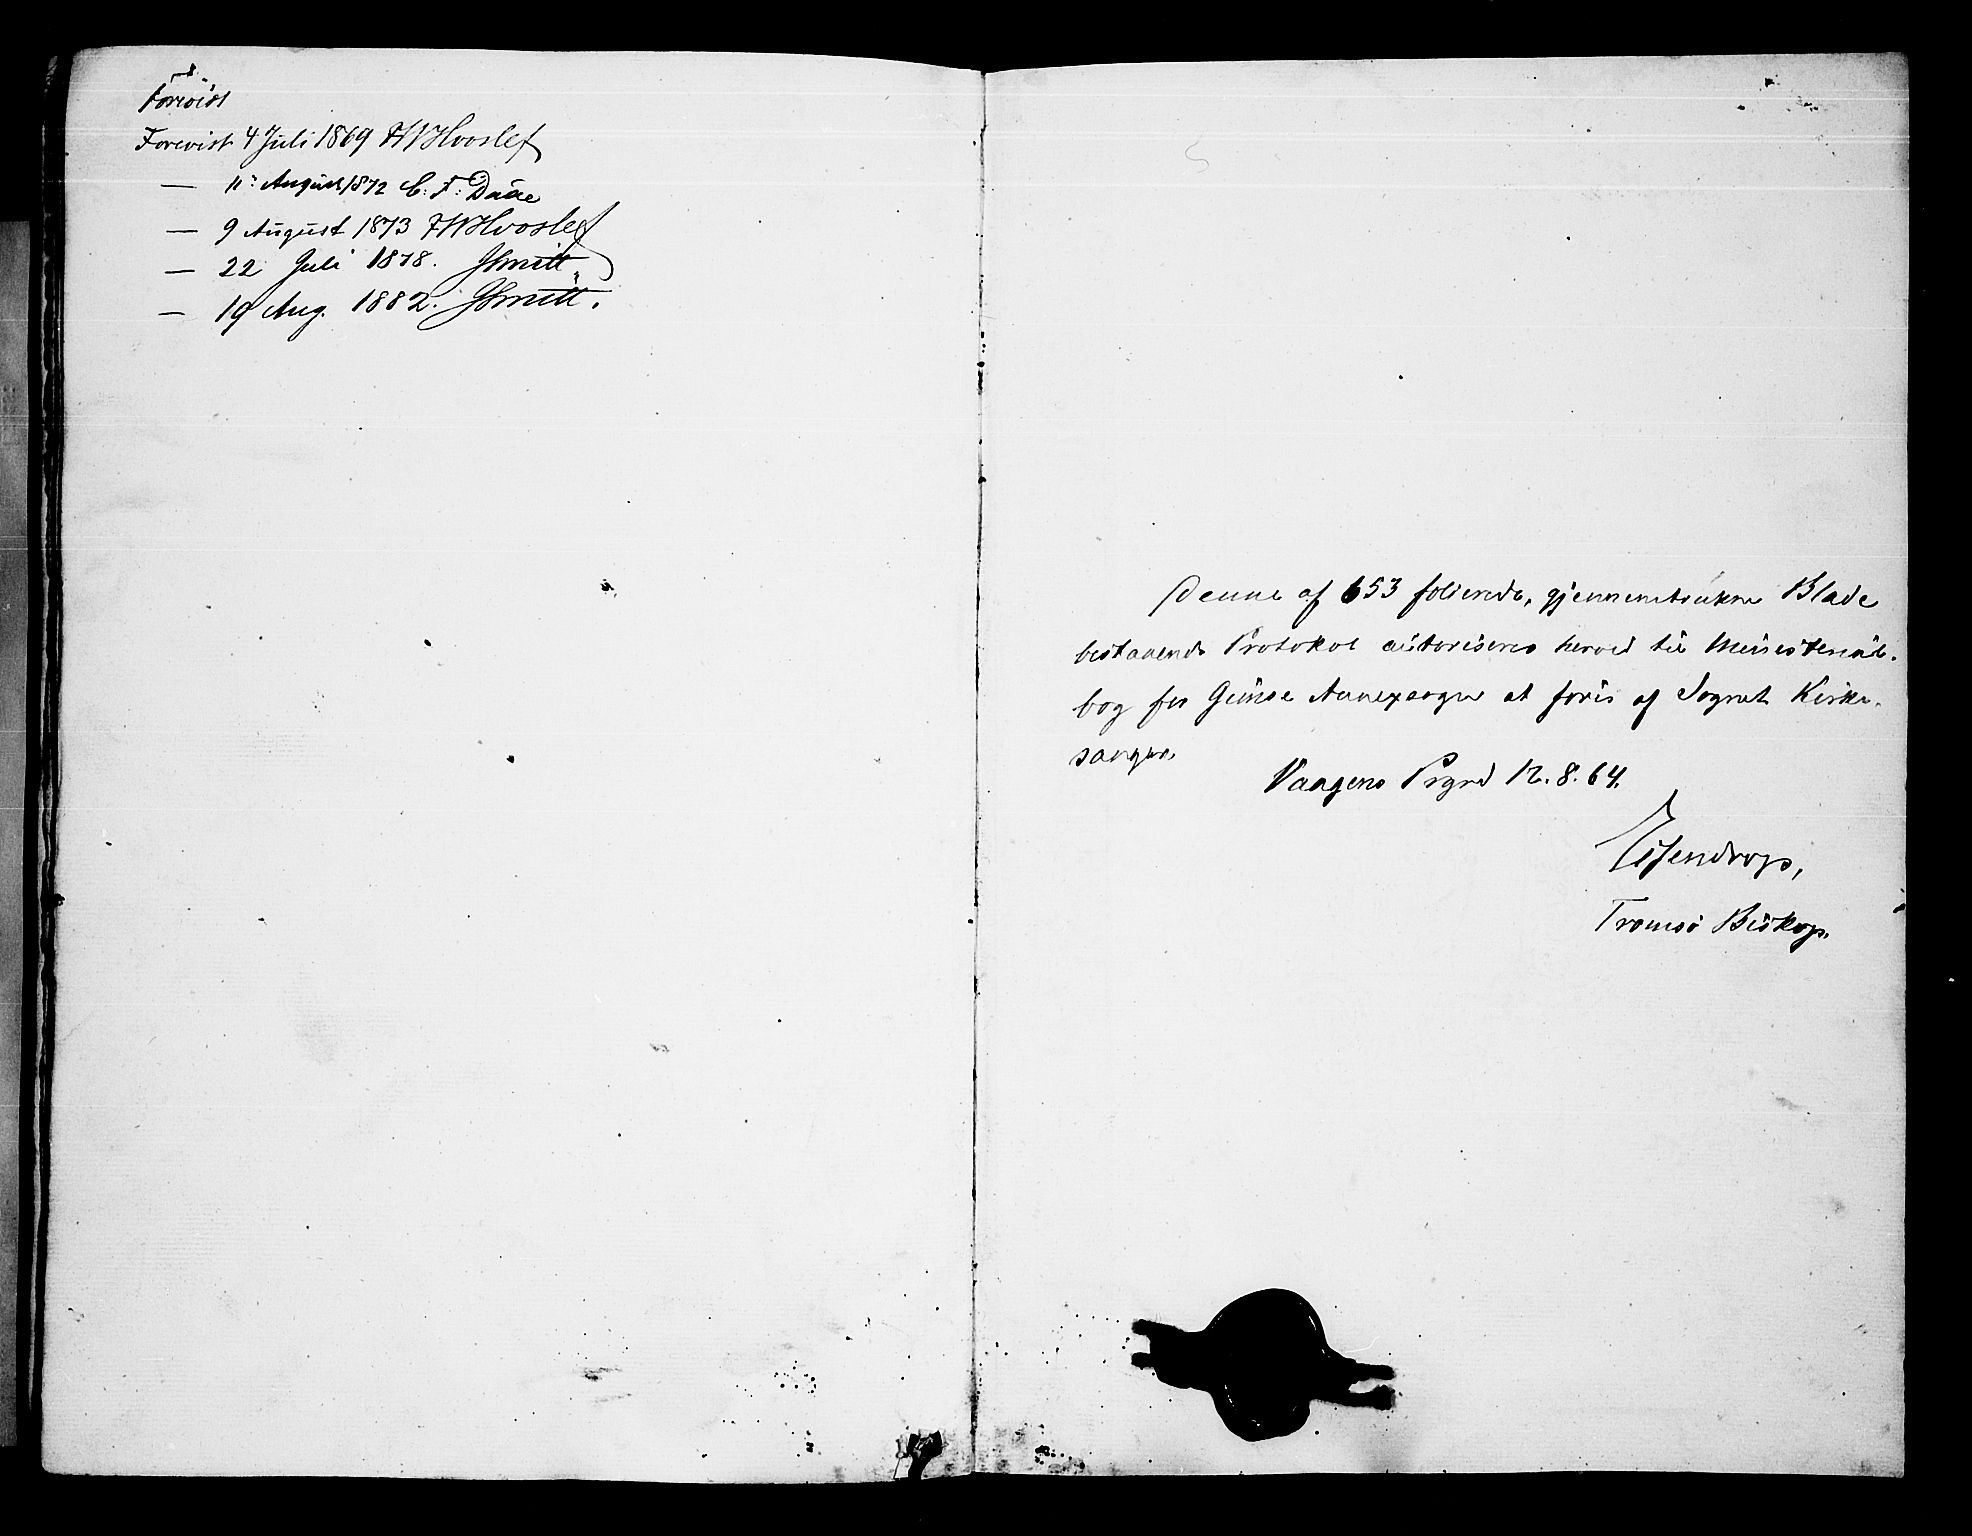 Forevist
Forevist 4 Juli 1869 FWHvoslef
— 11te August 1872 C. F. Daae
— 9 August 1873 FWHvoslef
— 22 Juli 1878. JSmitt
— 19 Aug. 1882. JSmitt.
Denne af 653 folierede, gjennemtrukne Blade
bestaaende Protokol autoriseres herved til Ministerial-
bog for Gimsø Annexsogn at føres af Sognets Kirke-
sanger.
Vaagens Prgrd 12.8.64.
Essendrop,
Tromsø Biskop.